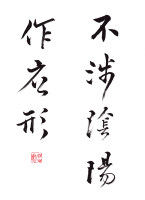 不涉陰陽
作衣形